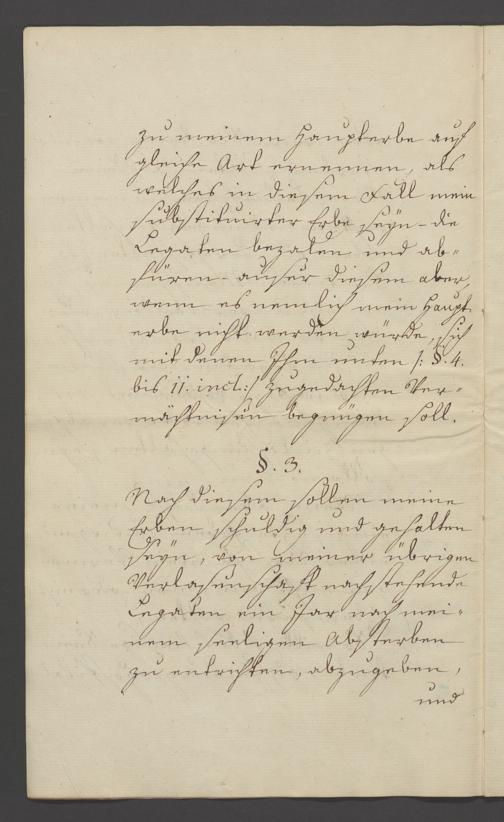 zu meinem Haupterbe auf
gleiche Art ernennen, als
welches in diesem Fall mein
substituirter Erbe seyn - die
Legaten bezalen und ab=
füren - auser diesem aber,
wenn es nemlich mein Haupt
erbe nicht werden würde, sich
mit denen Ihm unten /: §. 4.
bis 11. incl: / zugedachten Ver=
mächtnisen begnügen soll.
§. 3.
Nach diesem sollen meine
Erben schuldig und gehalten
seyn, von meiner übrigen
Verlasenschaft nachstehende
Legaten ein Jar nach mei=
nem seeligen Absterben
zu entrichten, abzugeben,
und